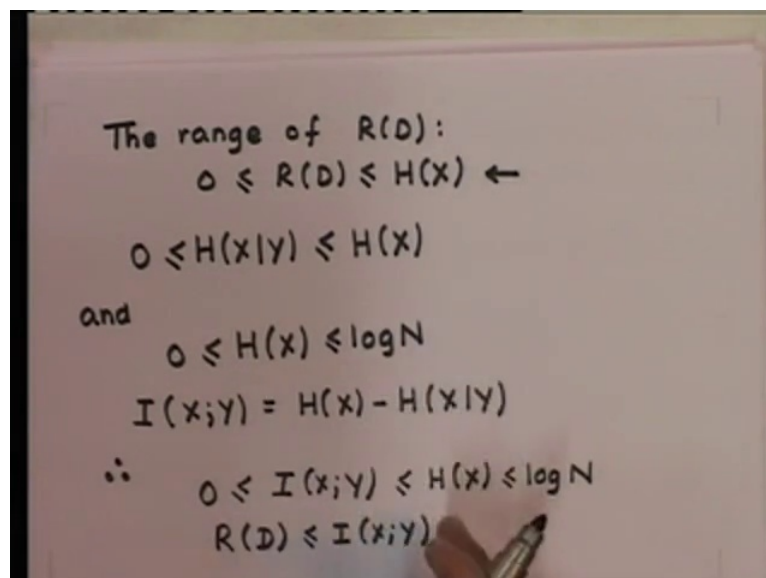 The range of R(D):
0 ≤ R(D) ≤ H(X) ←
0 ≤ H(X|Y) ≤ H(X)
and
0 ≤ H(X) ≤ log N
I(X;Y) = H(X) - H(X|Y)
∴ 0 ≤ I(X;Y) ≤ H(X) ≤ log N
R(D) ≤ I(X;Y)